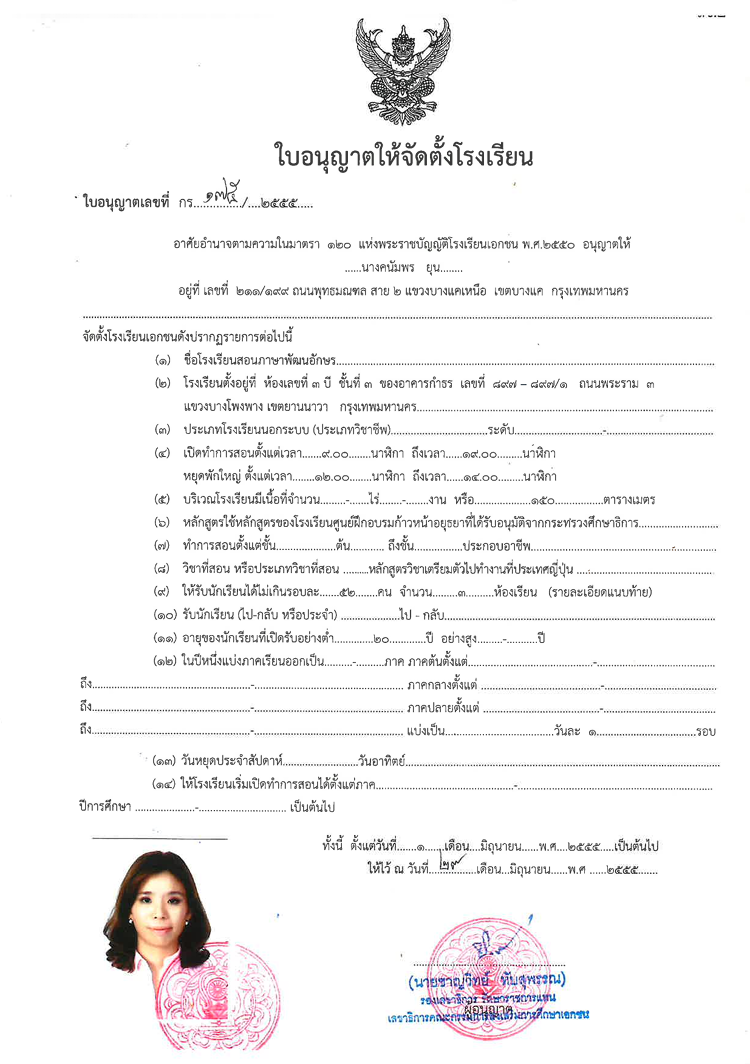 ใบอนุญาตให้จัดตั้งโรงเรียน
ใบอนุญาตเลขที่ กร....๑๗๕..../....๒๕๕๕.....
อาศัยอำนาจตามความในมาตรา ๑๒๐ แห่งพระราชบัญญัติโรงเรียนเอกชน พ.ศ.๒๕๕๐ อนุญาตให้
......นางคนัมพร ยุน........
อยู่ที่ เลขที่ ๒๑๑/๑๙๙ ถนนพุทธมณฑล สาย ๒ แขวงบางแคเหนือ เขตบางแค กรุงเทพมหานคร
จัดตั้งโรงเรียนเอกชนดังปรากฏรายการต่อไปนี้
(๑) ชื่อโรงเรียนสอนภาษาพัฒนอักษร....................
(๒) โรงเรียนตั้งอยู่ที่ ห้องเลขที่ ๓ บี ชั้นที่ ๓ ของอาคารกำธร เลขที่ ๘๙๗ – ๘๙๗/๑ ถนนพระราม ๓
แขวงบางโพงพาง เขตยานนาวา กรุงเทพมหานคร....................
(๓) ประเภทโรงเรียนนอกระบบ (ประเภทวิชาชีพ)....................ระดับ....................-....................
(๔) เปิดทำการสอนตั้งแต่เวลา.......๙.๐๐........นาฬิกา ถึงเวลา......๑๙.๐๐.........นาฬิกา
หยุดพักใหญ่ ตั้งแต่เวลา........๑๒.๐๐........นาฬิกา ถึงเวลา......๑๔.๐๐.........นาฬิกา
(๕) บริเวณโรงเรียนมีเนื้อที่จำนวน.........-.......ไร่........-........งาน หรือ....................๑๕๐.................ตารางเมตร
(๖) หลักสูตรใช้หลักสูตรของโรงเรียนศูนย์ฝึกอบรมก้าวหน้าอยุธยาที่ได้รับอนุมัติจากกระทรวงศึกษาธิการ....................
(๗) ทำการสอนตั้งแต่ชั้น....................ต้น........... ถึงชั้น................ประกอบอาชีพ....................
(๘) วิชาที่สอน หรือประเภทวิชาที่สอน .........หลักสูตรวิชาเตรียมตัวไปทำงานที่ประเทศญี่ปุ่น ....................
(๙) ให้รับนักเรียนได้ไม่เกินรอบละ.......๕๒........คน จำนวน.........๓..........ห้องเรียน (รายละเอียดแนบท้าย)
(๑๐) รับนักเรียน (ไป-กลับ หรือประจำ) ....................ไป - กลับ....................
(๑๑) อายุของนักเรียนที่เปิดรับอย่างต่ำ..............๒๐............ปี อย่างสูง.........-..........ปี
(๑๒) ในปีหนึ่งแบ่งภาคเรียนออกเป็น..........-..........ภาค ภาคต้นตั้งแต่....................-....................
ถึง....................-.................... ภาคกลางตั้งแต่ ....................-....................
ถึง....................-.................... ภาคปลายตั้งแต่ ....................-....................
ถึง....................-.................... แบ่งเป็น....................วันละ ๑....................รอบ
(๑๓) วันหยุดประจำสัปดาห์....................วันอาทิตย์....................
(๑๔) ให้โรงเรียนเริ่มเปิดทำการสอนได้ตั้งแต่ภาค....................-....................
ปีการศึกษา ....................-.................... เป็นต้นไป
ทั้งนี้ ตั้งแต่วันที่.......๑.......เดือน....มิถุนายน......พ.ศ....๒๕๕๕.....เป็นต้นไป
ให้ไว้ ณ วันที่....๒๙....เดือน...มิถุนายน......พ.ศ ......๒๕๕๕.......
(นายชาญวิทย์ ทับสุพรรณ)
รองเลขาธิการ รักษาราชการแทน
ผู้อนุญาต
เลขาธิการคณะกรรมการส่งเสริมการศึกษาเอกชน